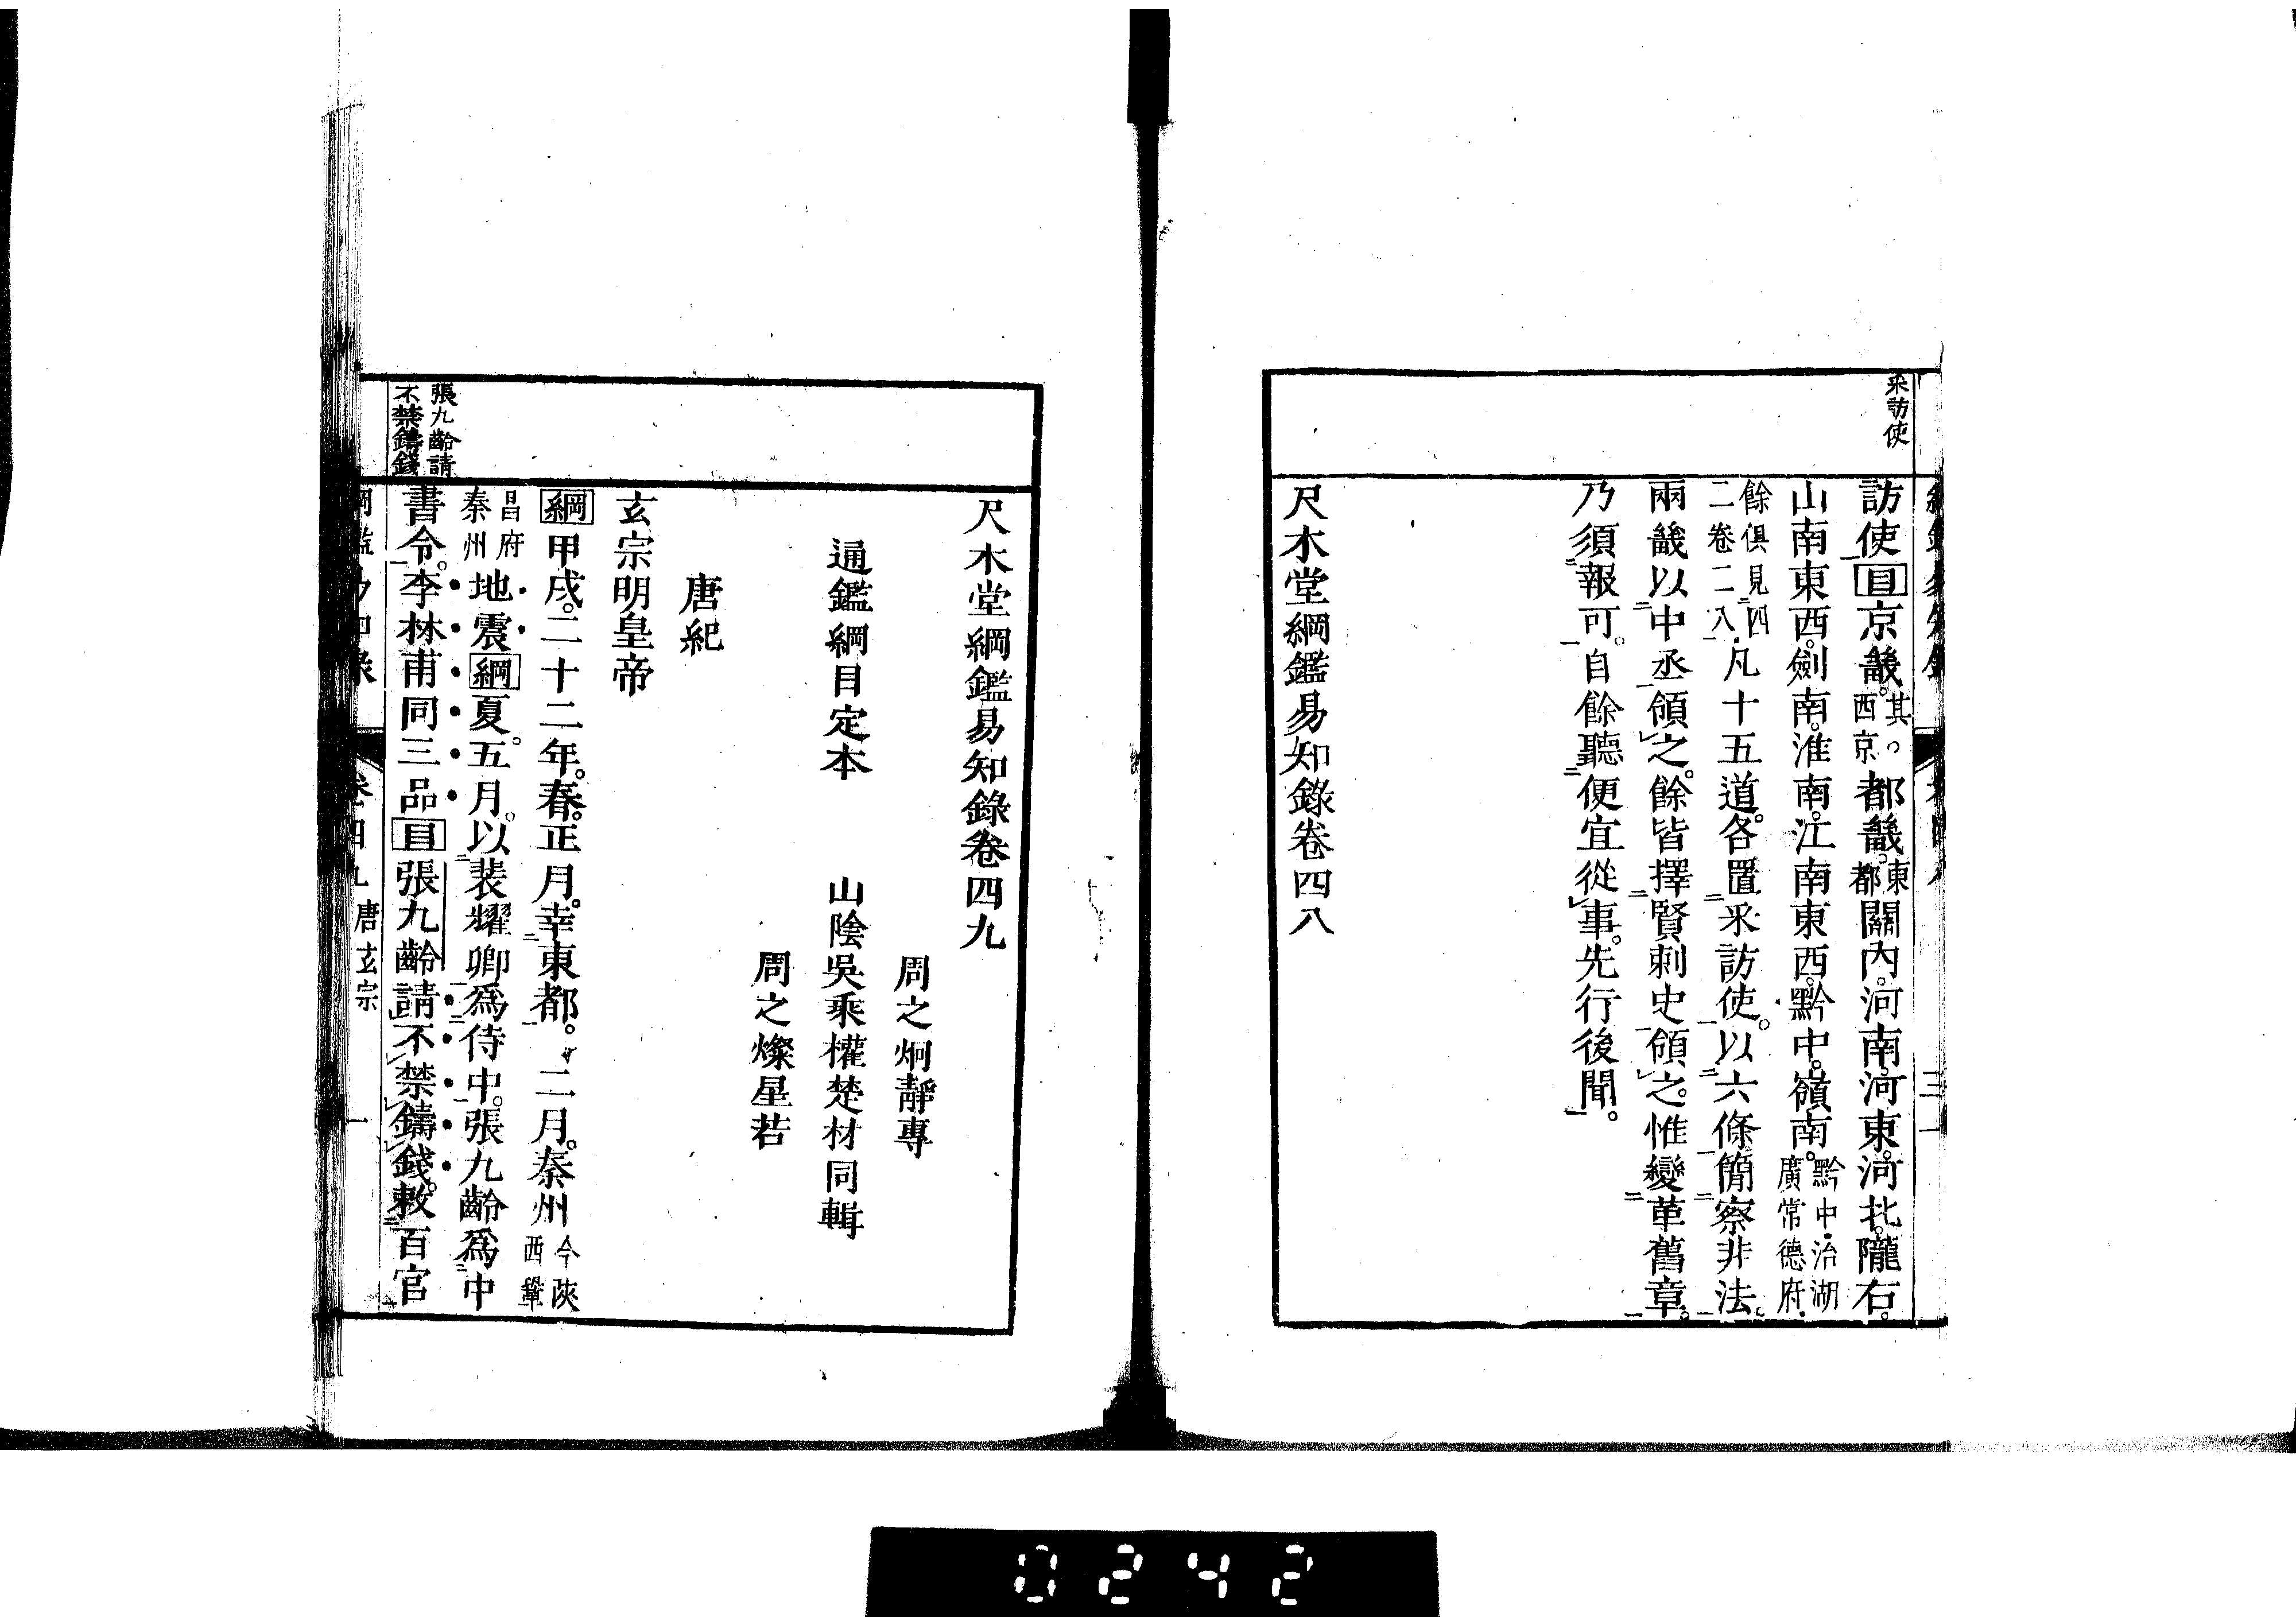 采訪使
訪使目京畿。其西京。都畿。東都關內。河南。河東。河北。隴右。
山南東西。劍南。淮南。江南東西。黔中。嶺南。黔中。治湖廣常德府。
餘俱見四二卷二八。凡十五道。各置采訪使。以六條簡察非法。
兩畿以中丞領之。餘皆擇賢刺史領之。惟變革舊章。
乃須報可。自餘聽便宜從事。先行後聞。
尺木堂綱鑑易知錄卷四八
尺木堂綱鑑易知錄卷四九
周之炯靜專
通鑑綱目定本 山陰吳乘權楚材同輯
周之燦星若
唐紀
玄宗明皇帝
綱甲戌。二十二年。春。正月。幸東都。二月。秦州今陝西鞏
昌府秦州地震綱夏。五月。以裴耀卿爲侍中。張九齡爲中
張九齡請
不禁鑄錢
書令。李林甫同三品目張九齡請不禁鑄錢。敕百官
唐玄宗
一
0242